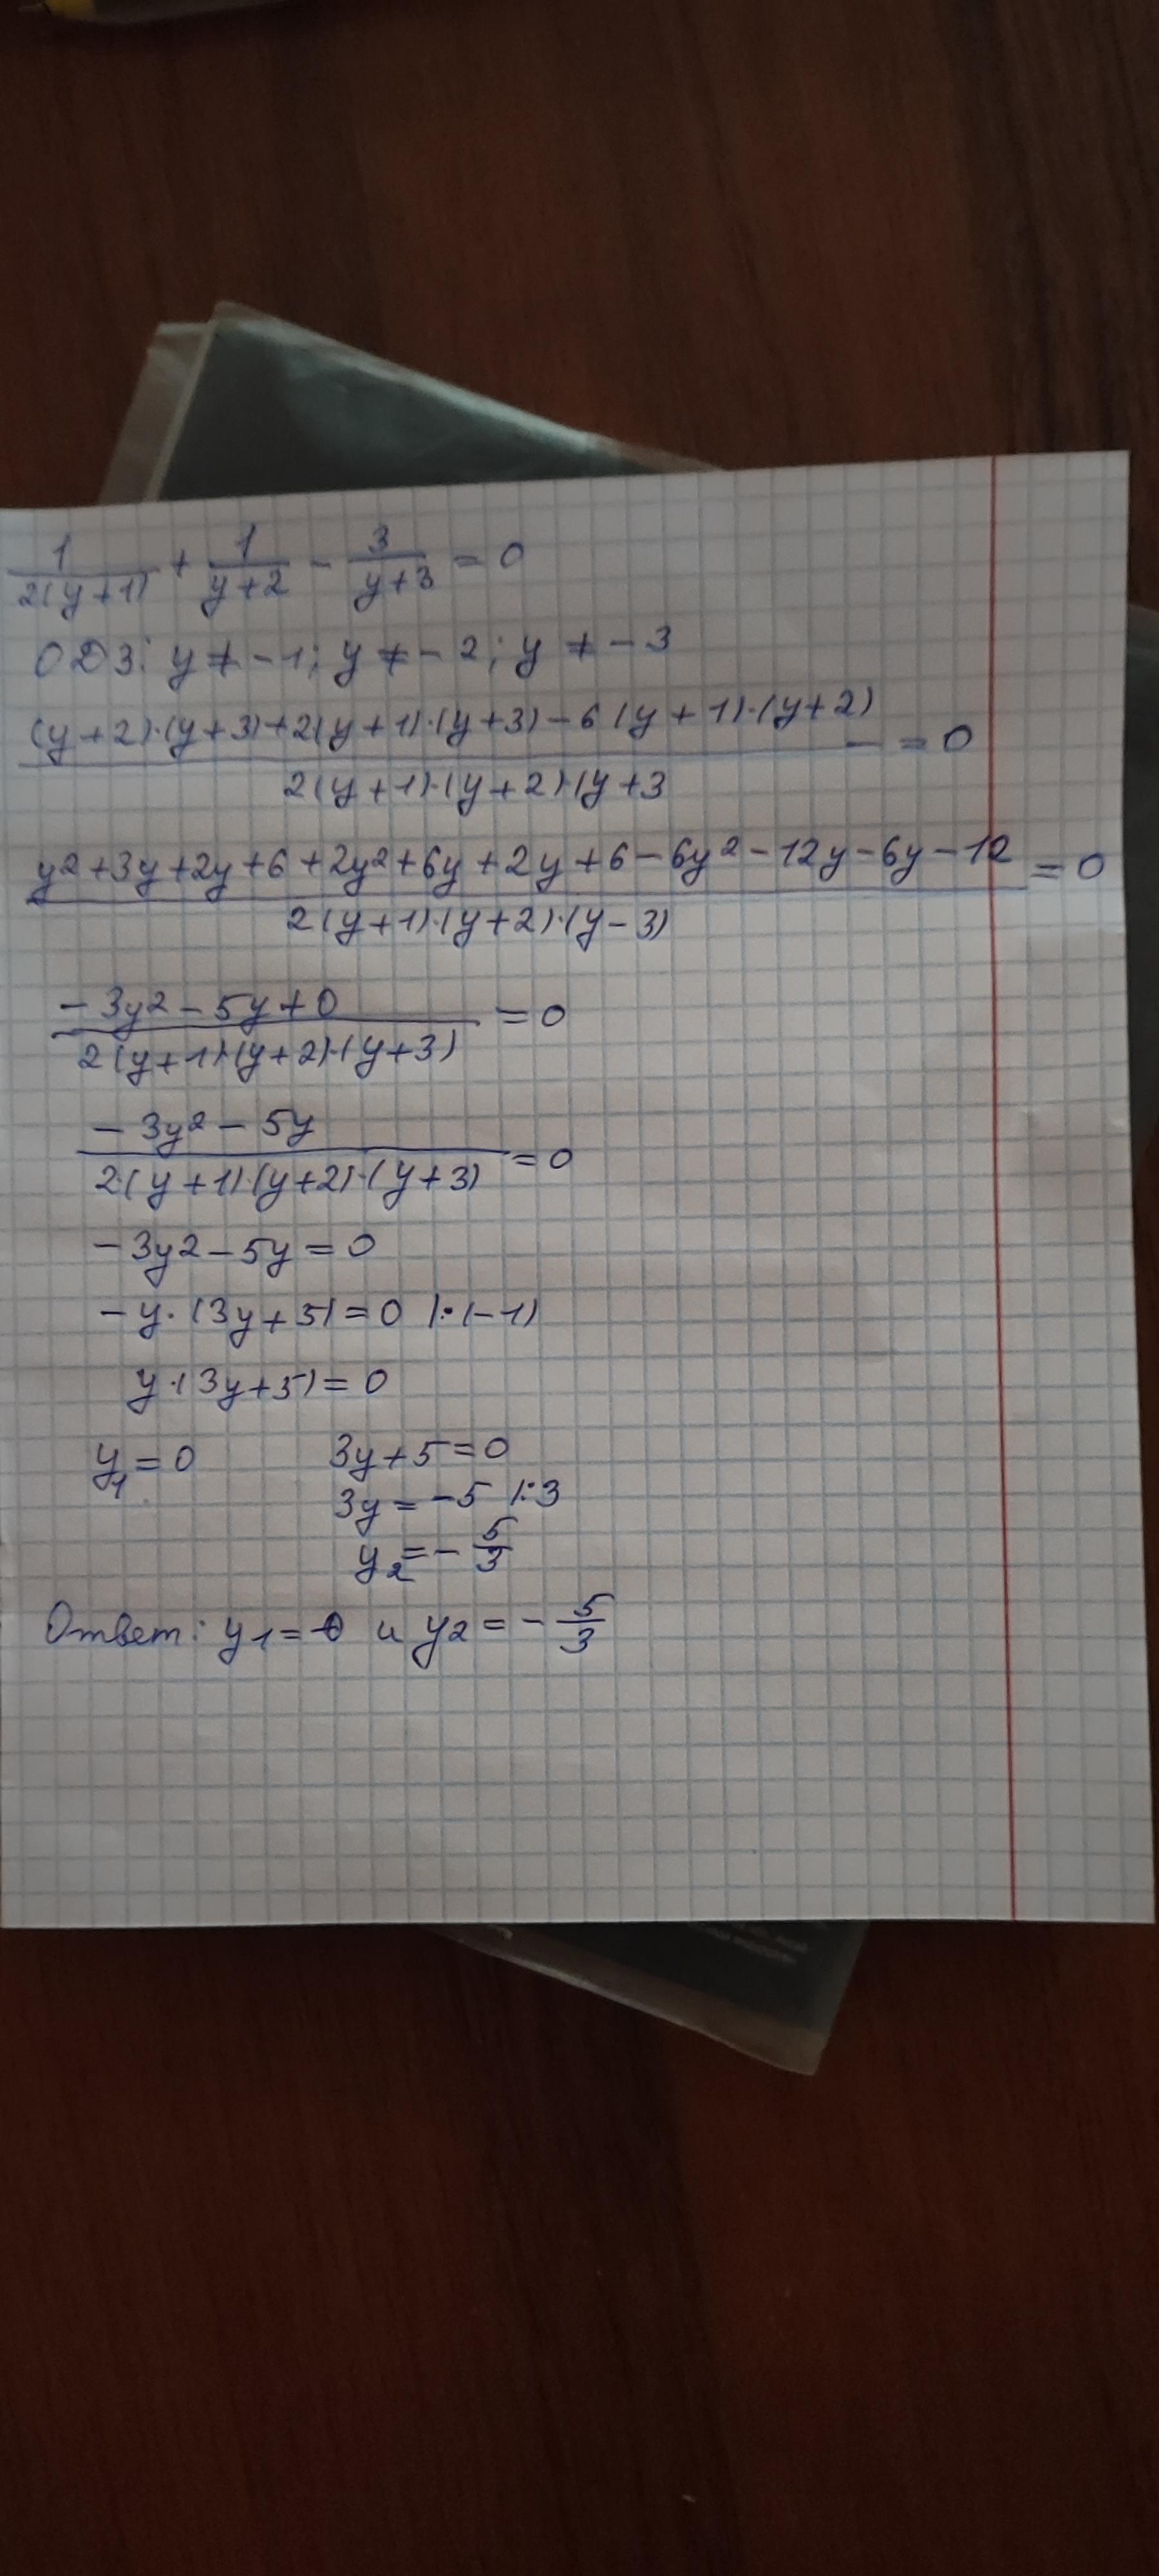 1/(2(y+1)) + 1/(y+2) - 3/(y+3) = 0
ОДЗ: y ≠ -1; y ≠ -2; y ≠ -3
((y+2)·(y+3)+2(y+1)·(y+3)-6(y+1)·(y+2))/(2(y+1)·(y+2)·(y+3) = 0
(y²+3y+2y+6+2y²+6y+2y+6-6y²-12y-6y-12)/(2(y+1)·(y+2)·(y-3)) = 0
(-3y²-5y+0)/(2(y+1)·(y+2)·(y+3)) = 0
(-3y²-5y)/(2·(y+1)·(y+2)·(y+3)) = 0
-3y²-5y=0
-y·(3y+5)=0 |·(-1)
y·(3y+5)=0
y₁=0 3y+5=0
3y=-5 |:3
y₂=-5/3
Ответ: y₁=0 и y₂=-5/3